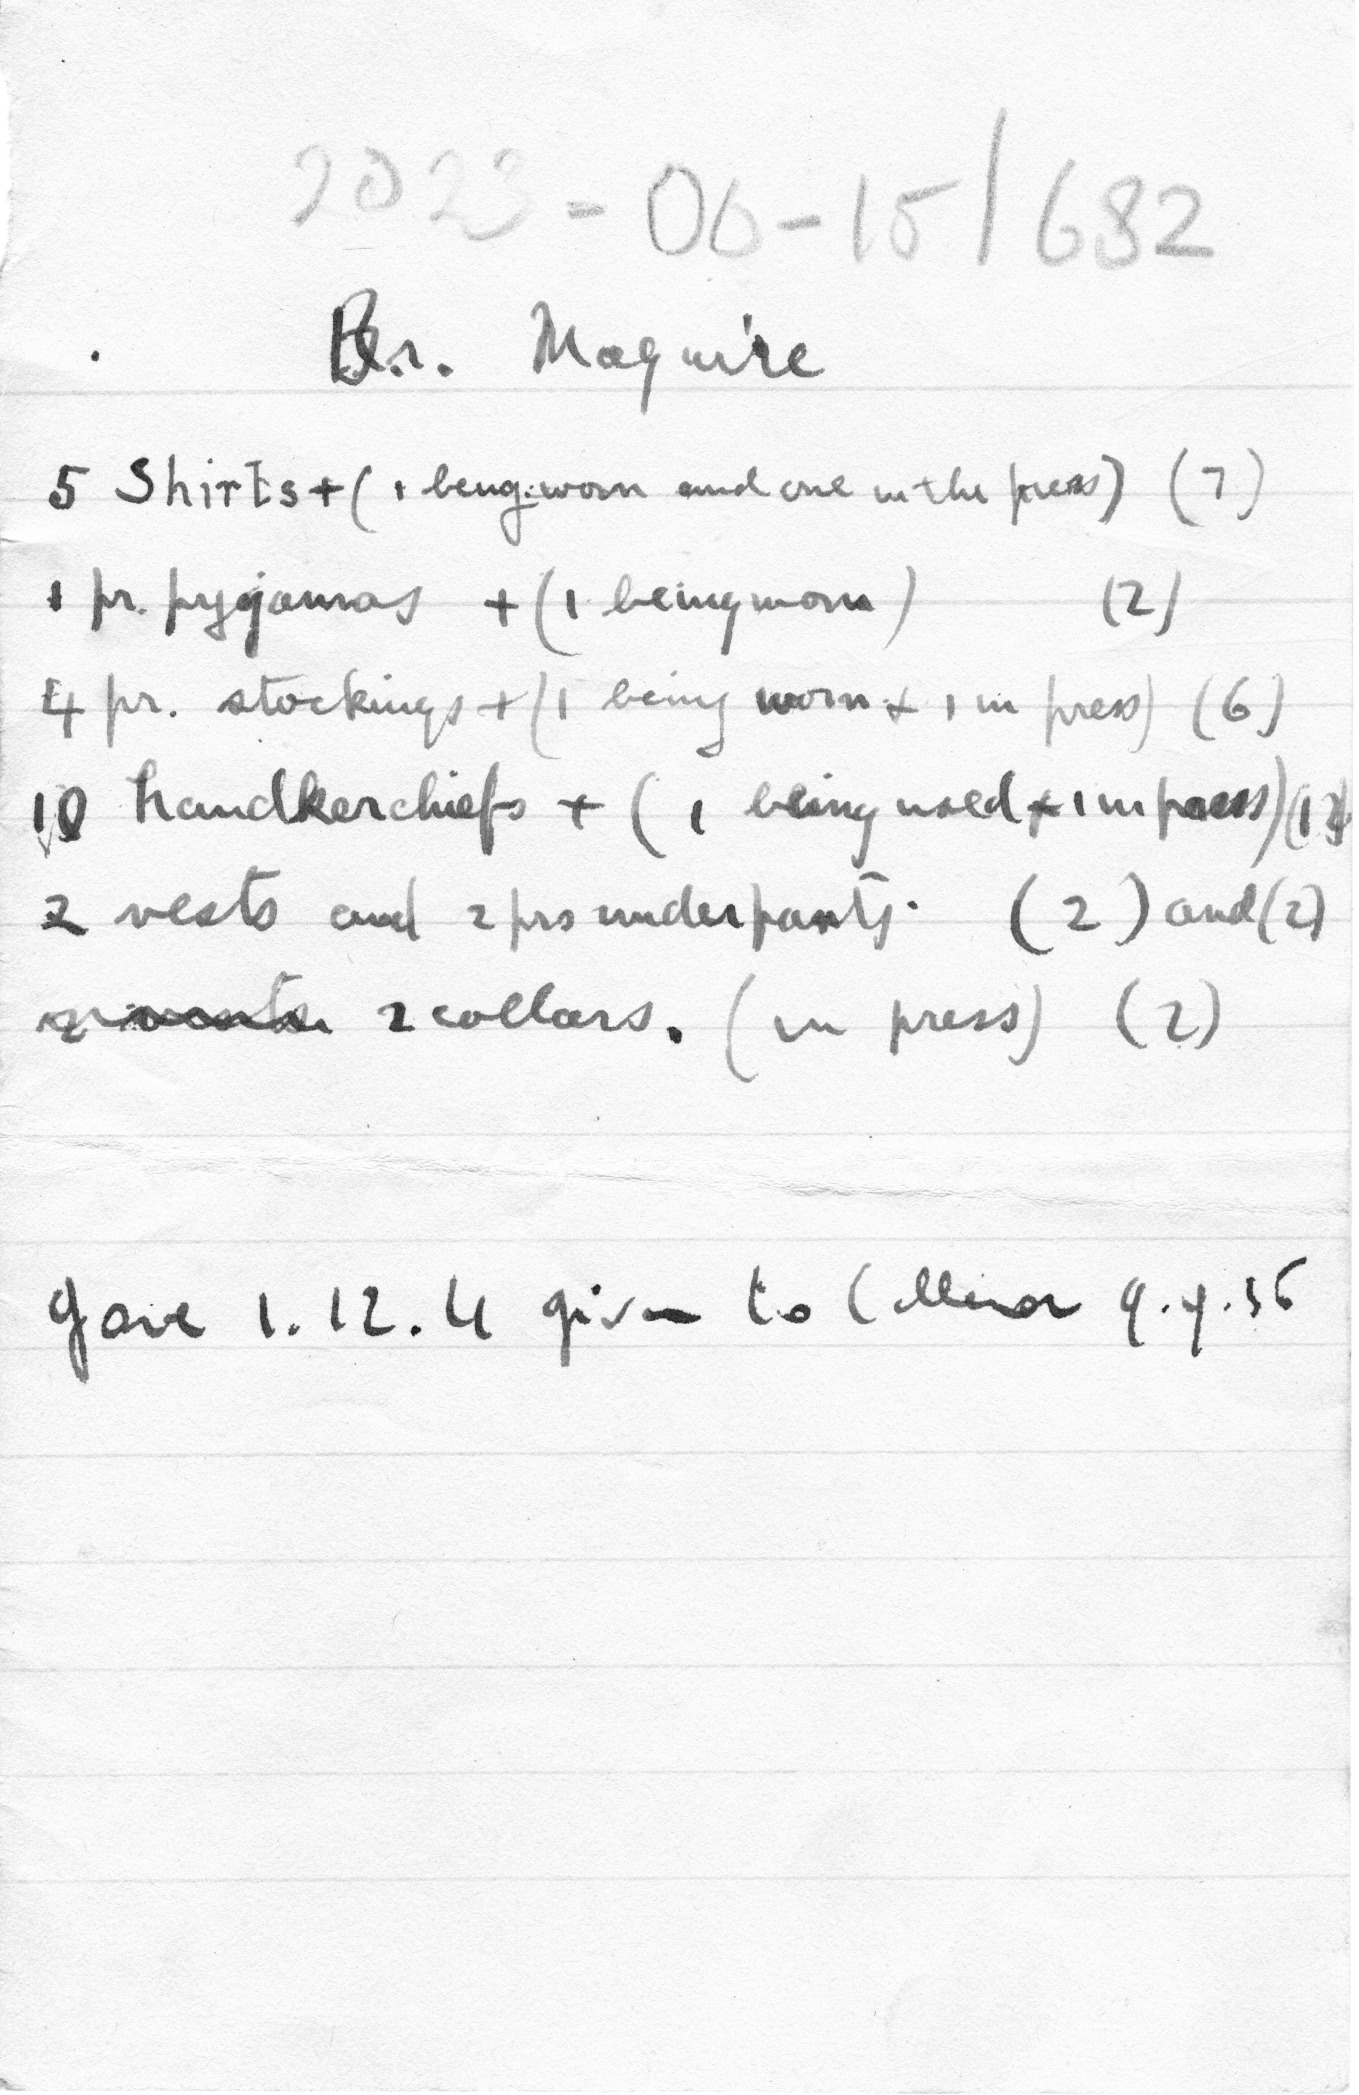 2023-06-15/682
Br. Maguire
5 Shirts + (1 being worn and one in the press) (7)
1 pr. pyjamas + (1 being worn) (2)
4 pr. stockings + (1 being worn + 1 in press) (6)
10 handkerchiefs + (1 being used + 1 in press)
2 vests and 2 prs underpants. (2) and (2)
2 collars. (in press) (2)
gave 1.12.4 given to